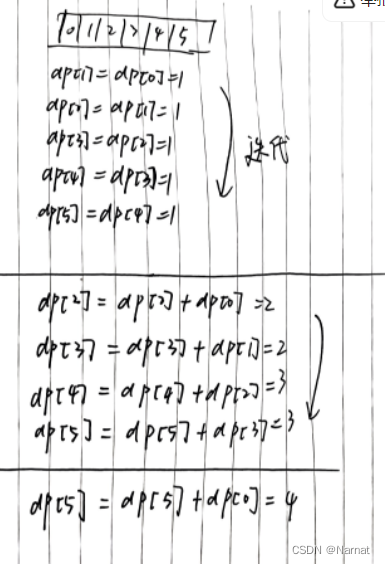 0 1 2 3 4 5
dp[1] = dp[0] = 1
dp[2] = dp[1] = 1
dp[3] = dp[2] = 1
迭代
dp[4] = dp[3] = 1
dp[5] = dp[4] = 1
dp[2] = dp[2] + dp[0] = 2
dp[3] = dp[3] + dp[1] = 2
dp[4] = dp[4] + dp[2] = 3
dp[5] = dp[5] + dp[3] = 3
dp[5] = dp[5] + dp[0] = 4
CSDN @Narnat